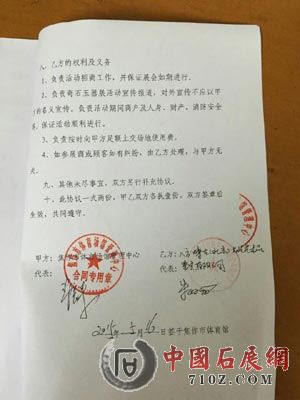 八、乙方的权利及义务
1、负责活动招商工作，并保证展会如期进行.
2、负责奇石玉器展活动宣传报道，对外宣传不应以甲
方的名义宣传。负责活动期间商户及人身、财产、消防安全
等，保证活动顺利进行。
3、负责按时向甲方足额上交场地使用费。
4、如参展商或顾客如有纠纷，由乙方处理，与甲方无
关。
九、其他未尽事宜，双方另行补充协议。
十、此协议一式两份，甲乙双方各执壹份，双方签章后
生效，共同遵守。
甲方：
乙方：
代表：
代表：
合同专用章
2015年 5月16日签于焦作市体育馆
中国石展网
71OZ.COM